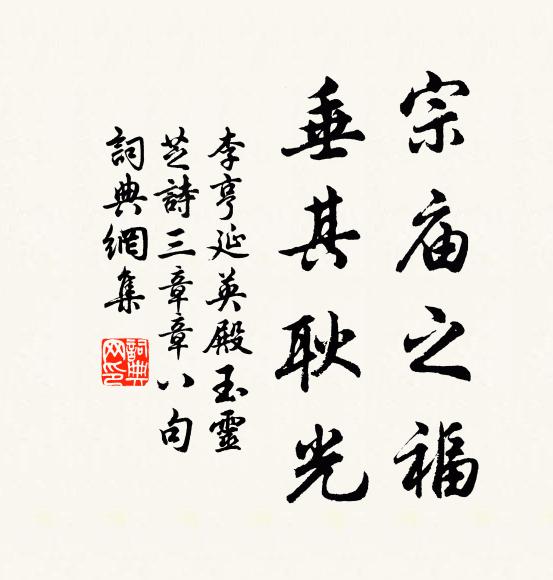 宗庙之福
垂其耿光
李亨延英殿玉靈
芝詩三章章八句
詞典網集
詞典網印